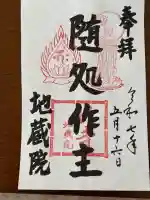 奉拝
令和七年
五月十六日
随処作主
地蔵院